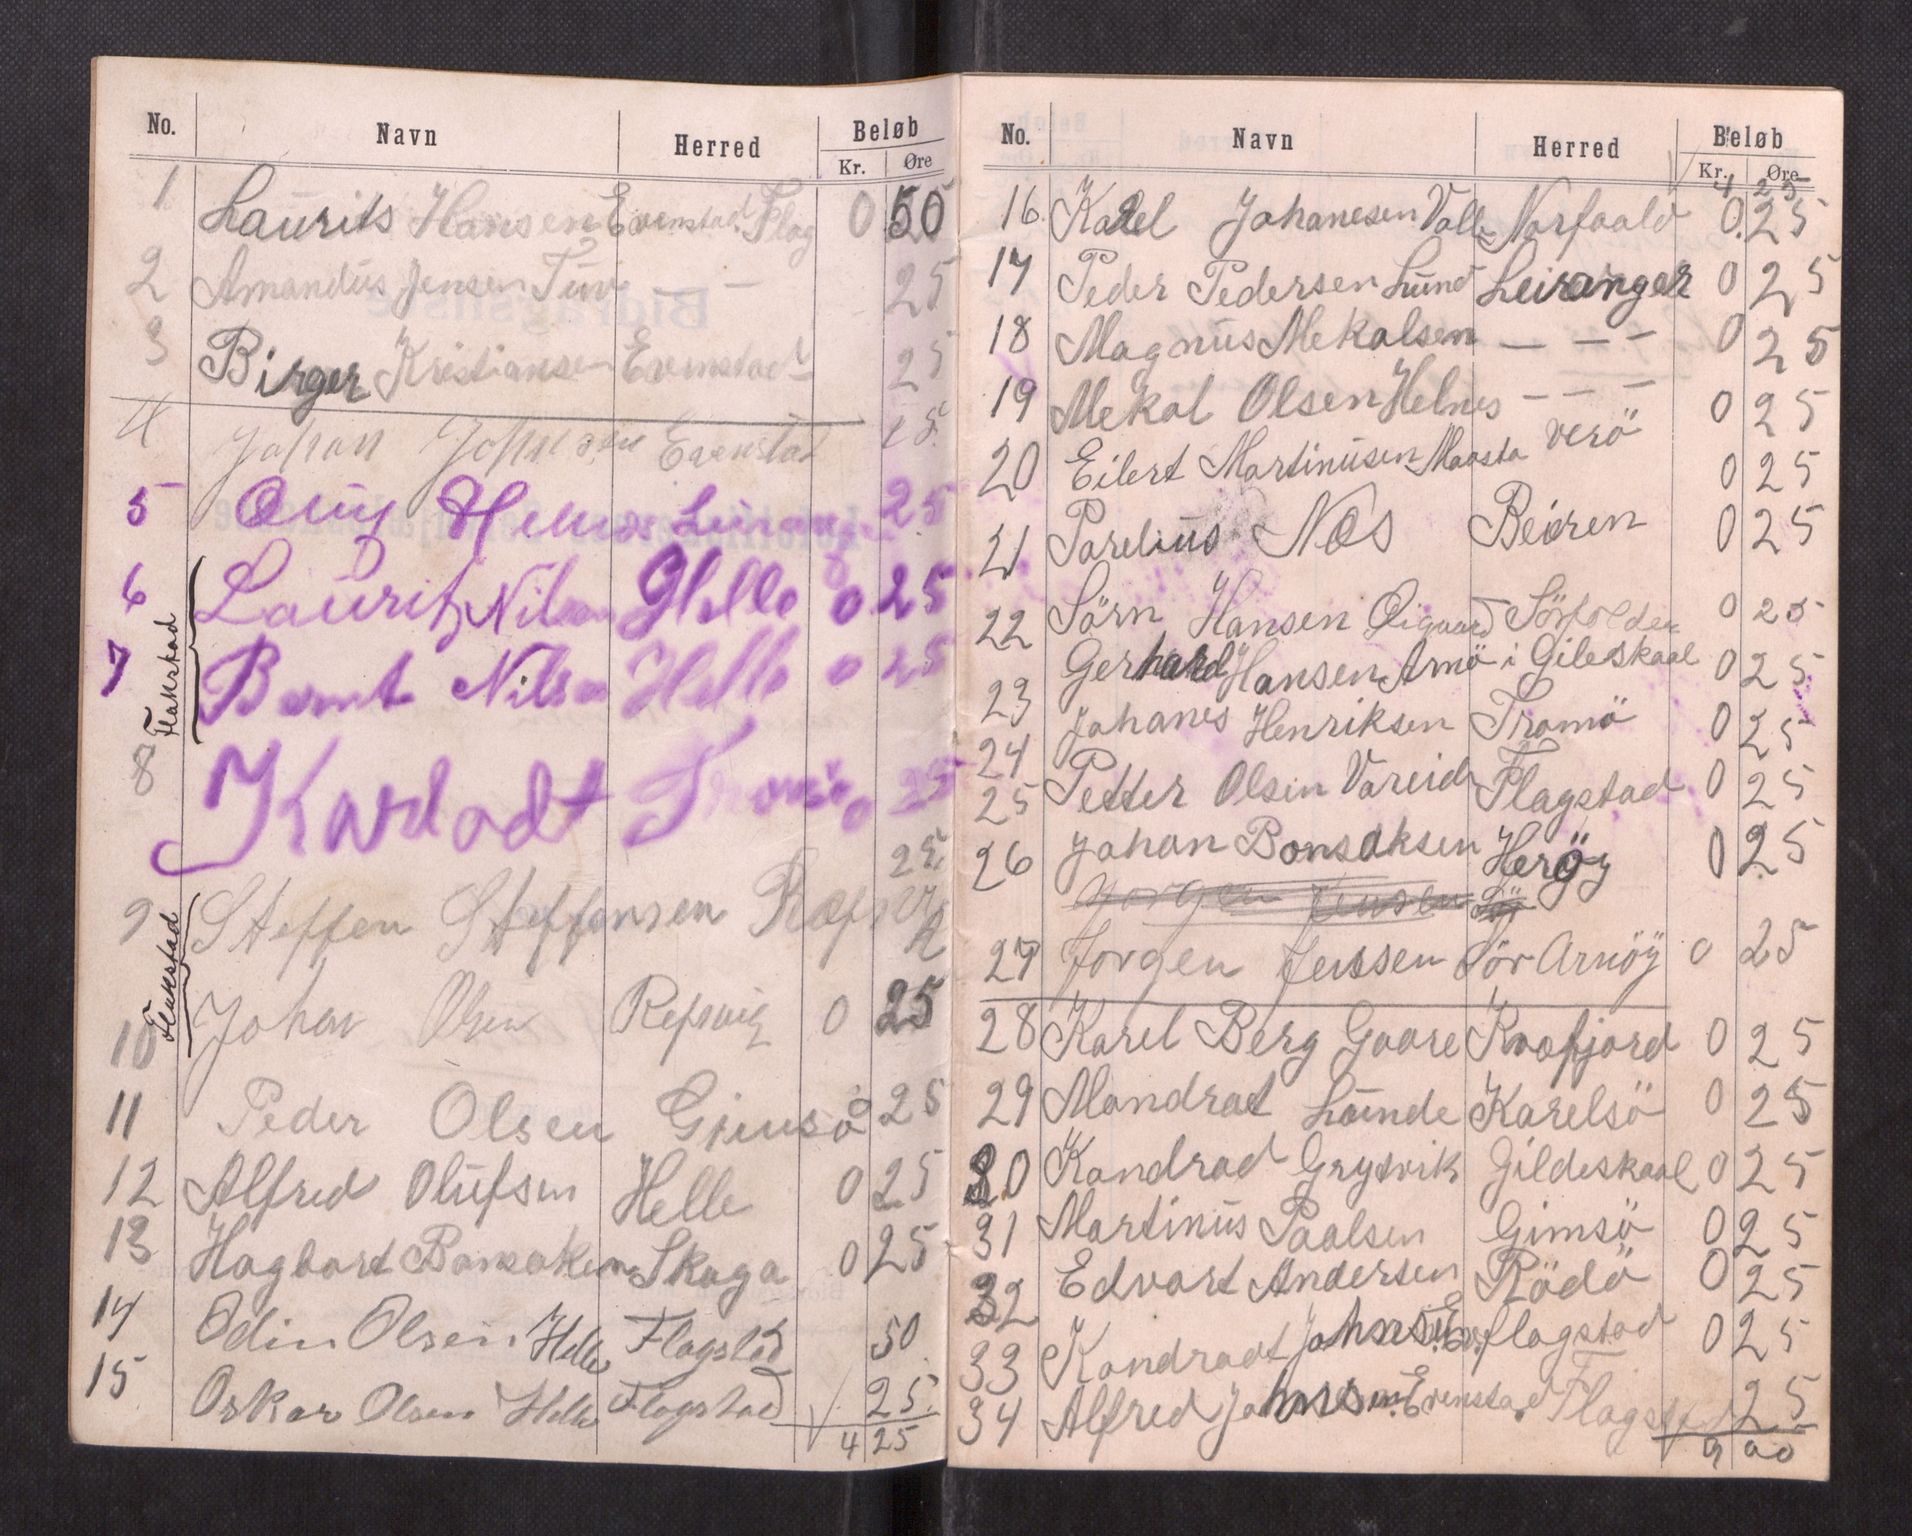 No. Navn Herred Beløb
Kr. Øre
1 Laurits Hansen Evenstad Flag 0 50
2 Amandus Jensen Tuv — — 25
3 Birger Kristiansen Evenstad 25
4 Johan Johnsen Evenstad 25
5 25
6 Laurits Nilsen Helle 0 25
7 Bernt Nilsen Helle 0 25
Flakstad
8 Kardadt Tromsö 0 25
9 Steffen Steffensen 25
Flakstad
10 Johan Olsen Refsvig 0 25
11 Peder Olsen Gimsö 25
12 Alfred Olufsen Helle 0 25
13 Hagbart Bonsaksen Skaga 0 25
14 Odin Olsen Helle Flagstad 50
15 Oskar Olsen Helle Flagstad 25
4 25
No. Navn Herred Beløb
Kr. Øre
4 25
16. Karel Johanesen Valle Norfoald 0.25
17 Peder Pedersen Lund Leiranger 0 25
18 Magnus Mekalsen — — — 0 25
19 Mekal Olsen Helnes — — — 0 25
20 Eilert Martinusen Maasta verö 0 25
21 Parelius Næs Beiren 0 25
22 Sörn Hansen Øigaard Sörfolden 0 25
23 Gerhard Hansen Arnö i Gileskaal 0 25
24 Johanes Henriksen Tromö 0 25
25 Petter Olsen Vareid Flagstad 0 25
26 Johan Bonsaksen Heröy 0 25
Jorgen Jensen Sör
27 Jorgen Jenssen Sör Arnöy 0 25
28 Karel Berg Gaare Kvæfjord 0 25
29 Mandrat Lunde Karelsö 0 25
30 Kandrad Grytvik Gildeskaal 0 25
31 Martinus Paalsen Gimsö 0 25
32 Edvart Andersen Rödö 0 25
33 Kandradt Johnsen Ev. flagstad 0 25
34 Alfred Johnsen Evenstad Flagstad 25
9 00